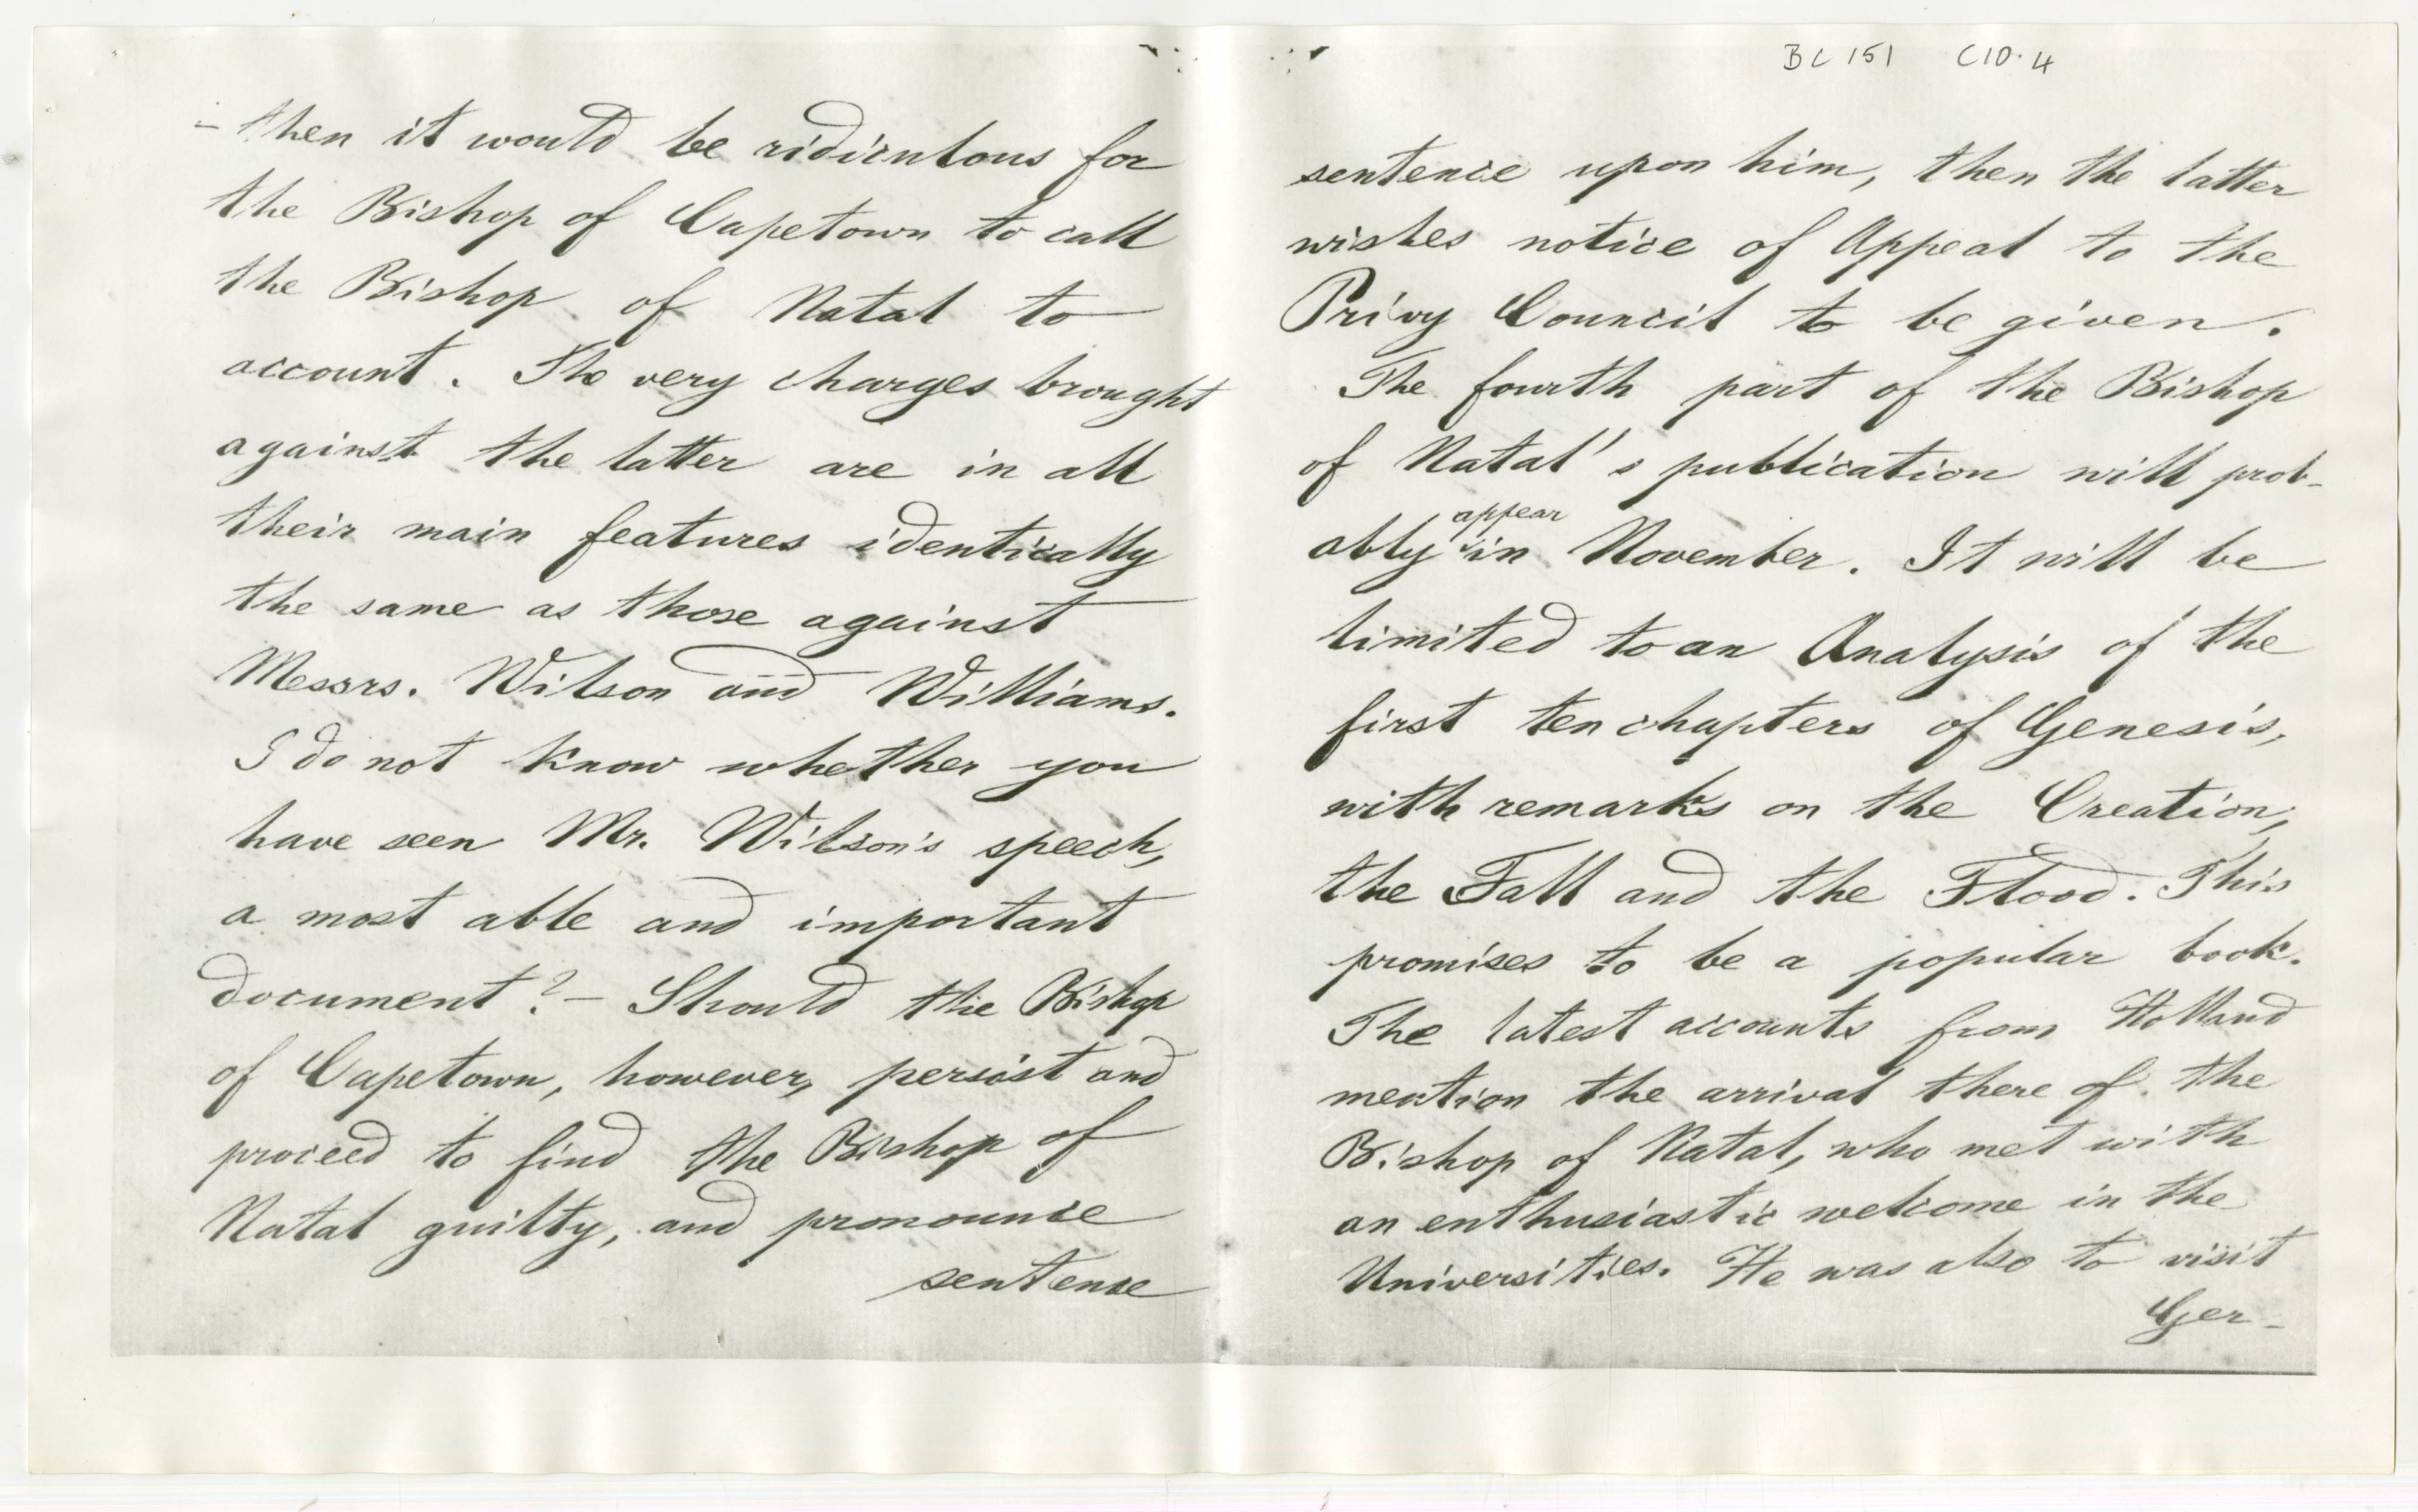 - then it would be ridiculous for
the Bishop of Capetown to call
the Bishop of Natal to
account. The very charges brought
against the latter are in all
their main features identically
the same as those against
Messrs. Wilson and Williams.
I do not know whether you
have seen Mr. Wilson's speech,
a most able and important
document? - Should the Bishop
of Capetown, however, persist and
proceed to find the Bishop of
Natal guilty, and pronounce
sentence
BC 151 C10.4
sentence upon him, then the latter
wishes notice of Appeal to the
Privy Council to be given.
The fourth part of the Bishop
of Natal's publication will prob-
appear
ably in November. It will be
limited to an Analysis of the
first ten chapters of Genesis,
with remarks on the Creation,
the Fall and the Flood. This
promises to be a popular book.
The latest accounts from Holland
mention the arrival there of the
Bishop of Natal, who met with
an enthusiastic welcome in the
Universities. He was also to visit
Ger-